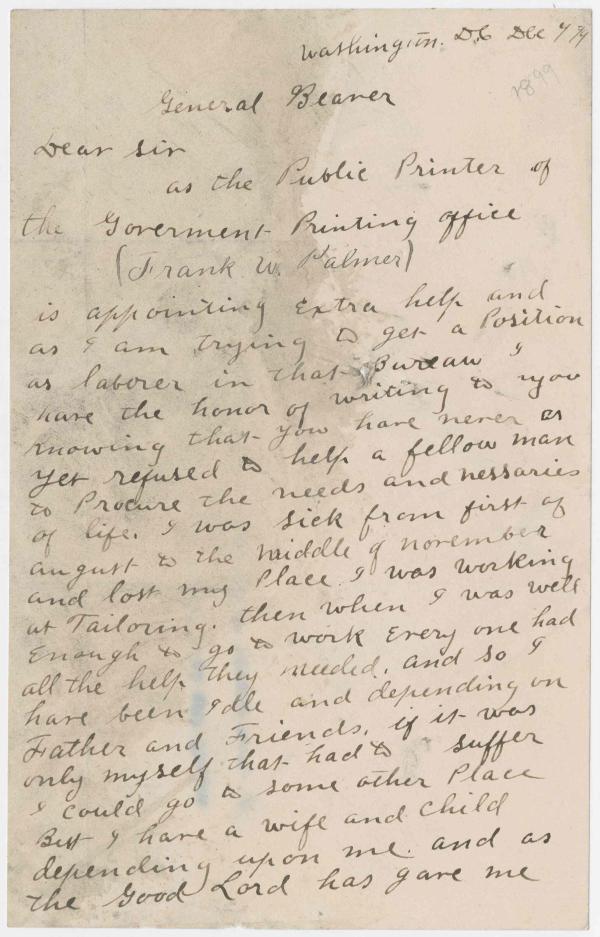 Washington. D.C Dec 7/99
1899
General Beaver
Dear Sir
as the Public Printer of
the Goverment Printing office
(Frank W. Palmer)
is appointing Extra help and
as I am trying to get a Position
as laborer in that Bureau I
have the honor of writing to you
knowing that you have never as
yet refused to help a fellow man
to Procure the needs and nessaries
of life. I was sick from first of
august to the middle of november
and lost my Place. I was working
at Tailoring. then when I was well
Enough to go to work Every one had
all the help they needed. and so I
have been Idle and depending on
Father and Friends. if it was
only myself that had to suffer
I could go to some other Place
But I have a wife and child
depending upon me. and as
the Good Lord has gave me